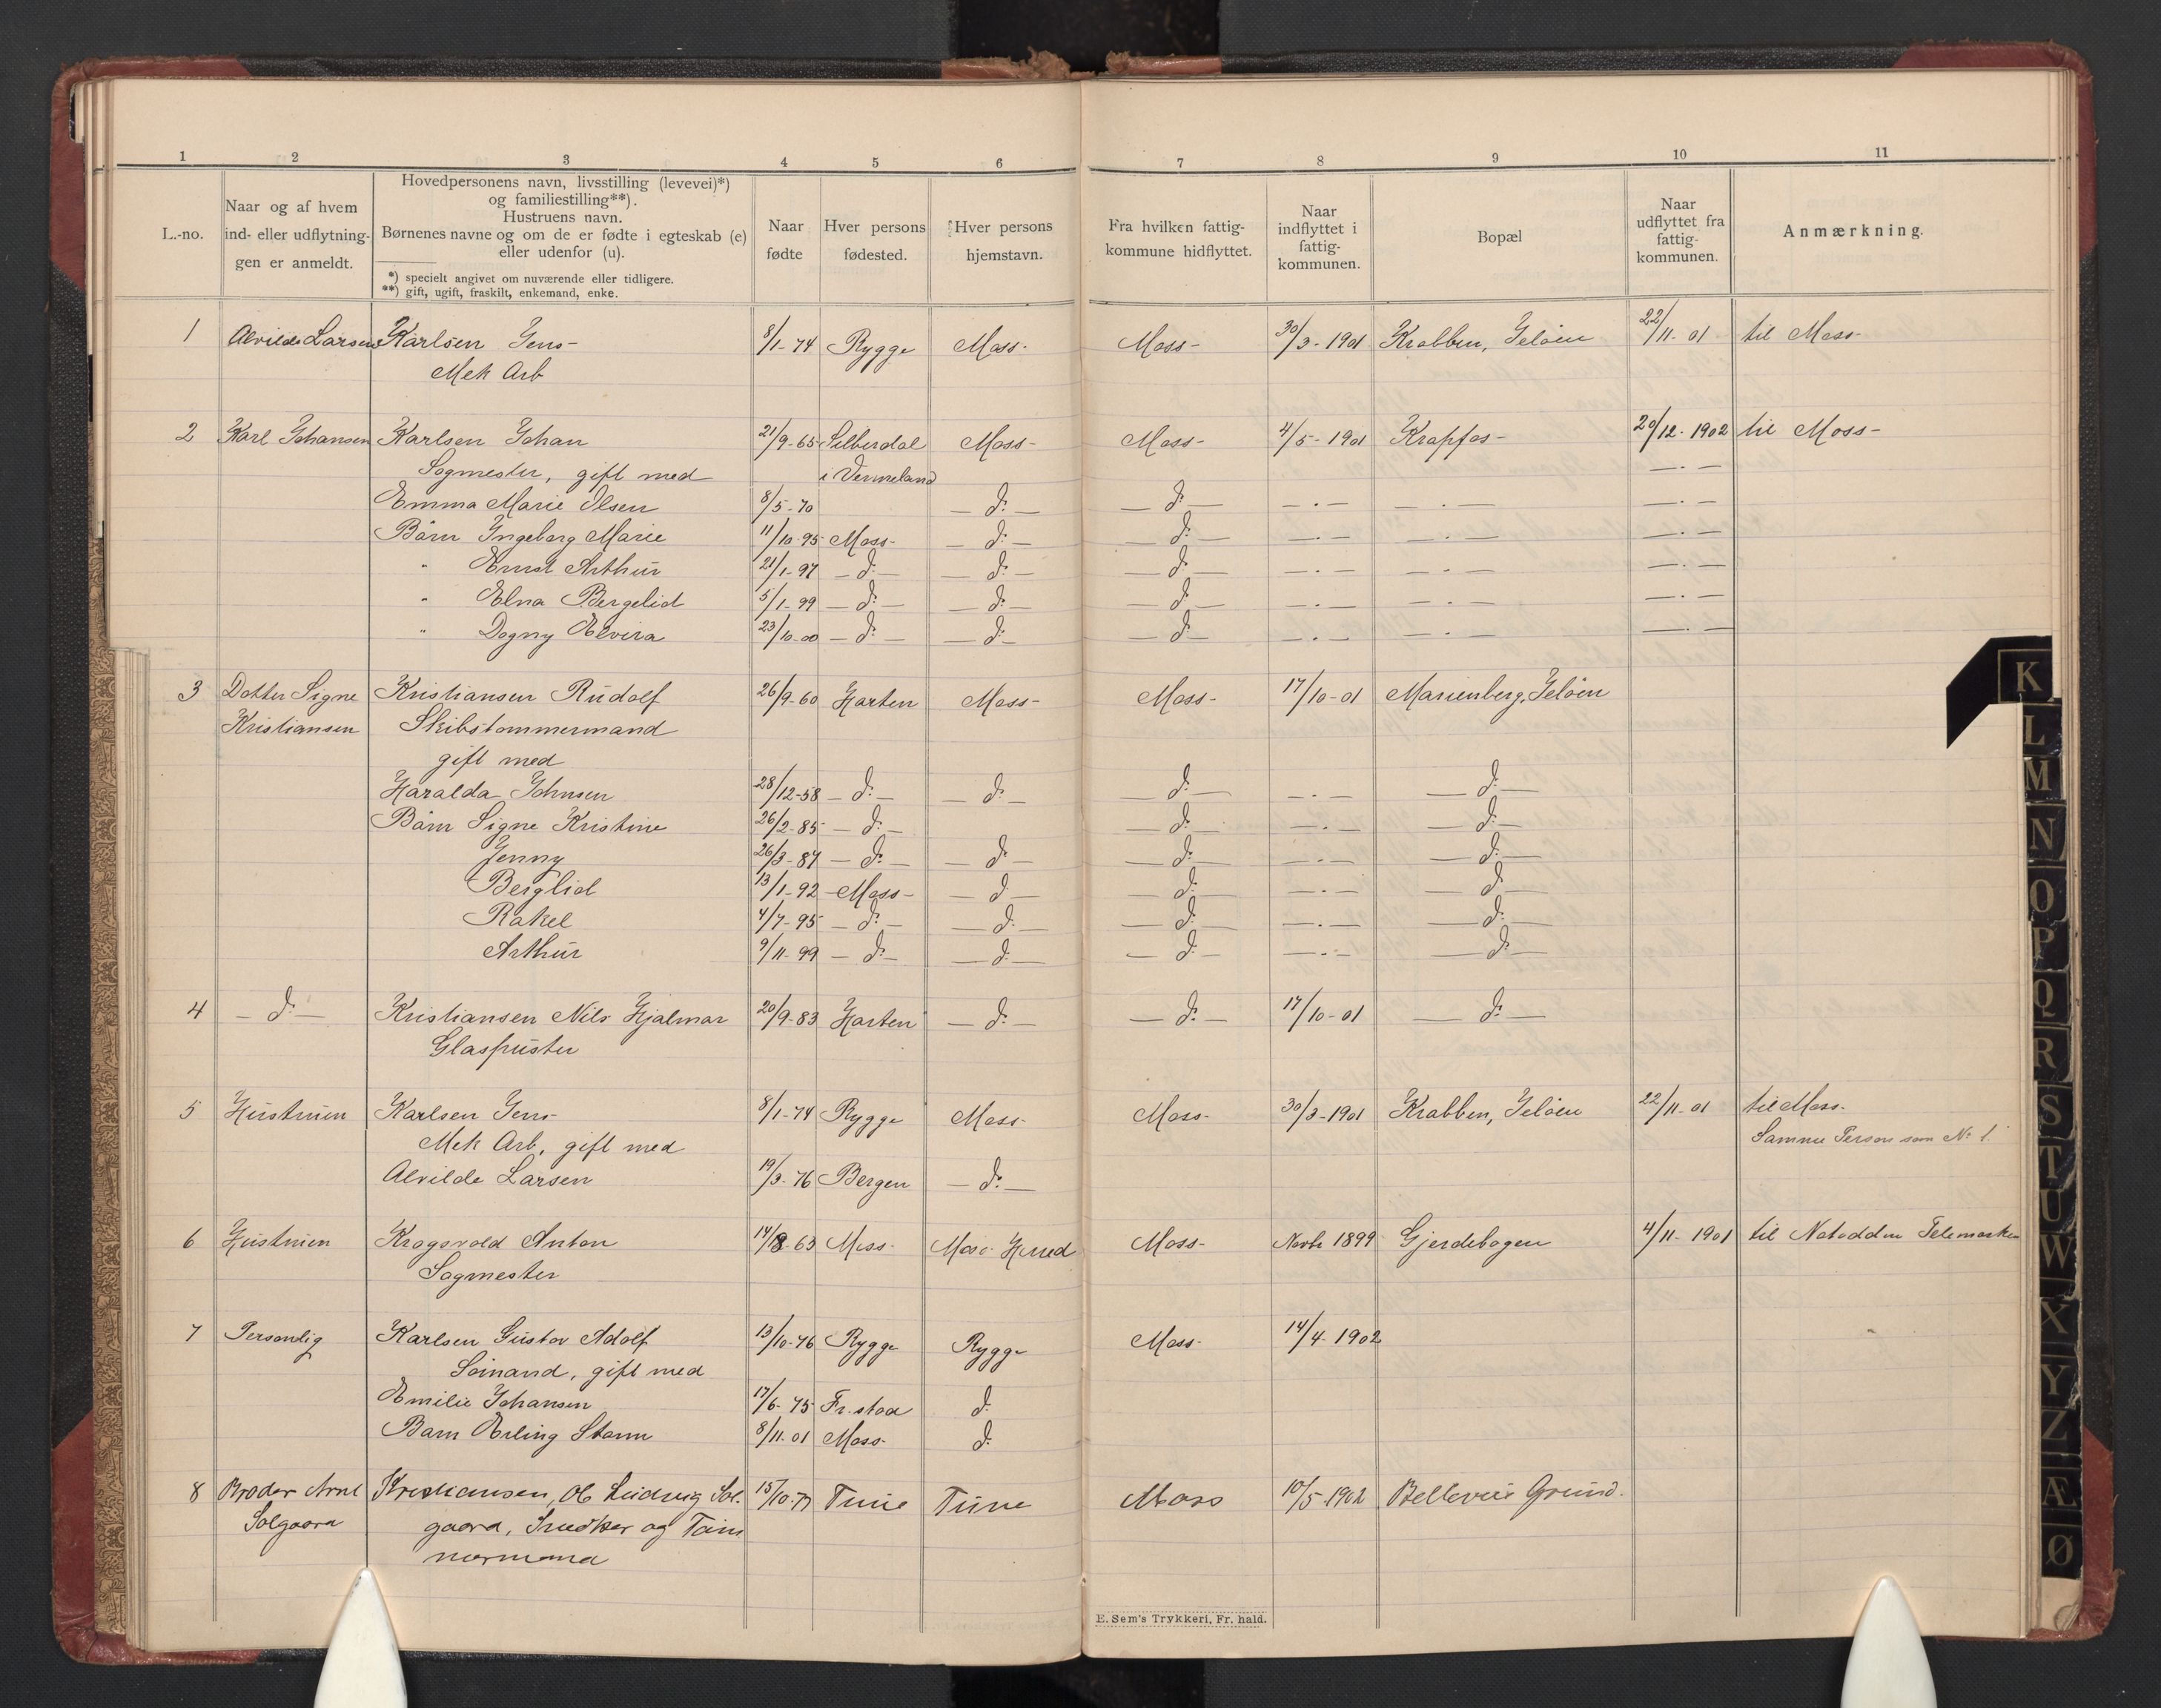 1 2 3 4 5 6 7 8 9 10 11
L.-no.
Naar og af hvem
ind- eller udflytnin-
gen er anmeldt.
Hovedpersonens navn, livsstilling (levevei)*)
og familiestilling**).
Hustruens navn.
Børnenes navne og om de er fødte i egteskab (e)
eller udenfor (u).
*) specielt angivet om nuværende eller tidligere.
**) gift, ugift, fraskilt, enkemand, enke.
Naar
fødte
Hver persons
fødested.
Hver persons
hjemstavn.
Fra hvilken fattig-
kommune hidflyttet.
Naar
indflyttet i
fattig-
kommunen.
Bopæl
Naar
udflyttet fra
fattig-
kommunen.
Anmærkning.
1 Alvilde Larsen Karlsen Jens- 8/1-74 Rygge Moss- Moss- 30/3-1901 Krabben, Jeløen 22/11-01 til Moss-
Mek Arb
2 Karl Johansen Karlsen Johan 21/9-65 Silberdal Moss- Moss- 4/5-1901 Krapfos- 20/12-1902 til Moss-
Sagmester, gift med i Vermeland —.—
Emma Marie Olsen 8/5-70 —d:— —d:— —.— —.— —.—
Børn Ingeborg Marie 11/10-95 Moss- —d:— —d:— —.— —.— —.—
" Ernst Arthur 21/1-97 —d:— —d:— —d:— —.— —.— —.—
" Elna Bergelid 5/1-99 —d:— —d:— —d:— —.— —.— —.—
" Dagny Elvira 23/10-00 —d:— —d:— —d:— —.— —.— —.—
3 Datter Signe Kristiansen Rudolf 26/9-60 Horten Moss- Moss- 17/10-01 Marienberg, Jeløen
Kristiansen Skibstømmermand
gift med
Haralda Johnsen 28/12-58 —d:— —d:— —d:— —.— —d:—
Børn Signe Kristine 26/2-85 —d:— —d:— —.— —d:—
Jenny 26/3-87 —d:— —d:— —d:— —.— —d:—
Berglid 13/1-92 —Moss- —d— —d:— —.— —d:—
Rakel 4/7-95 —d:— —d:— —d:— —.— —d:—
Arthur 9/11-99 —d:— —d:— —d:— —.— —d:—
4 —d:— Kristiansen Nils Hjalmar 20/9-83 Horten —d:— —d:— 17/10-01 —d:—
Glaspuster
5 Hustruen Karlsen Jens- 8/1-74 Rygge Moss- Moss- 30/3-1901 Krabben, Jeløen 22/11-01 til Moss-
Mek Arb, gift med Samme Person som No 1.
Alvilde Larsen 19/3-76 Bergen —d:—
6 Hustruen Kragsvold Anton 14/8-63 Moss- Moss- Herred Moss- Novbr 1899 Gjerdebogen 4/11-1901 til Notodden Telemarken
Sagmester
7 Personlig Karlsen Gustav Adolf 13/10-76 Rygge Rygge Moss- 14/4-1902
Sømand, gift med
Emilie Johansen 17/6-75 Fr.stad d:
Barn Erling Storm 8/11-01 Moss- d:
8 Broder Arnt Kristiansen, Ole Ludvig Sol- 15/10-77 Tune Tune Moss 10/5-1902 Bellevue Grund.
Solgaard gaard, Snedker og Tøm
mermand
E. Sem's Trykkeri, Fr. hald.
K
L
M
N
O
P
Q
R
S
T
U
W
X
Y
Z
Æ
Ø